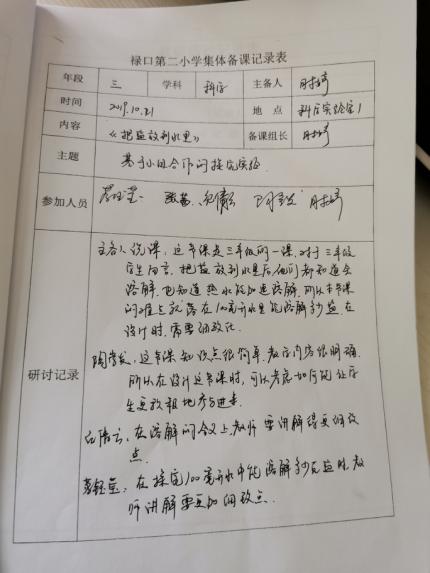 禄口第二小学集体备课记录表
年段 三 学科 科学 主备人
时间 2019.10.21 地点 科学实验室1
内容 《把盐放到水里》 备课组长
主题 基于小组合作的探究实验
参加人员
研讨记录
主备人说课,这节课是三年级的一课,对于三年级
学生而言,把盐放到水里后,他们都知道会
溶解,也知道热水能加速溶解,所以本节课
的难点就落在100毫升水里能溶解多少盐,在
设计时,需要细致化.
这节课知识点很简单,教学内容很明确,
所以在设计这节课时,可以考虑如何能让学
生更积极地参与进来.
在溶解的含义上教师要讲解得更细致
点.
在探究100毫升水中能溶解多少克盐时教
师讲解要更加细致点.